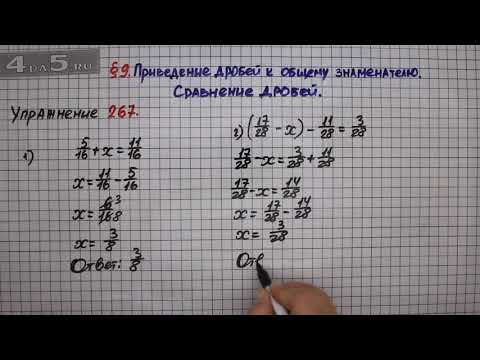 4РА5.RU
§9. Приведение дробей к общему знаменателю.
Сравнение дробей.
Упражнение 267.
1) 5/16 + x = 11/16
x = 11/16 - 5/16
x = 6 3/16 8
x = 3/8
Ответ: 3/8
2) (17/28 - x) - 11/28 = 3/28
17/28 - x = 3/28 + 11/28
17/28 - x = 14/28
x = 17/28 - 14/28
x = 3/28
Отв